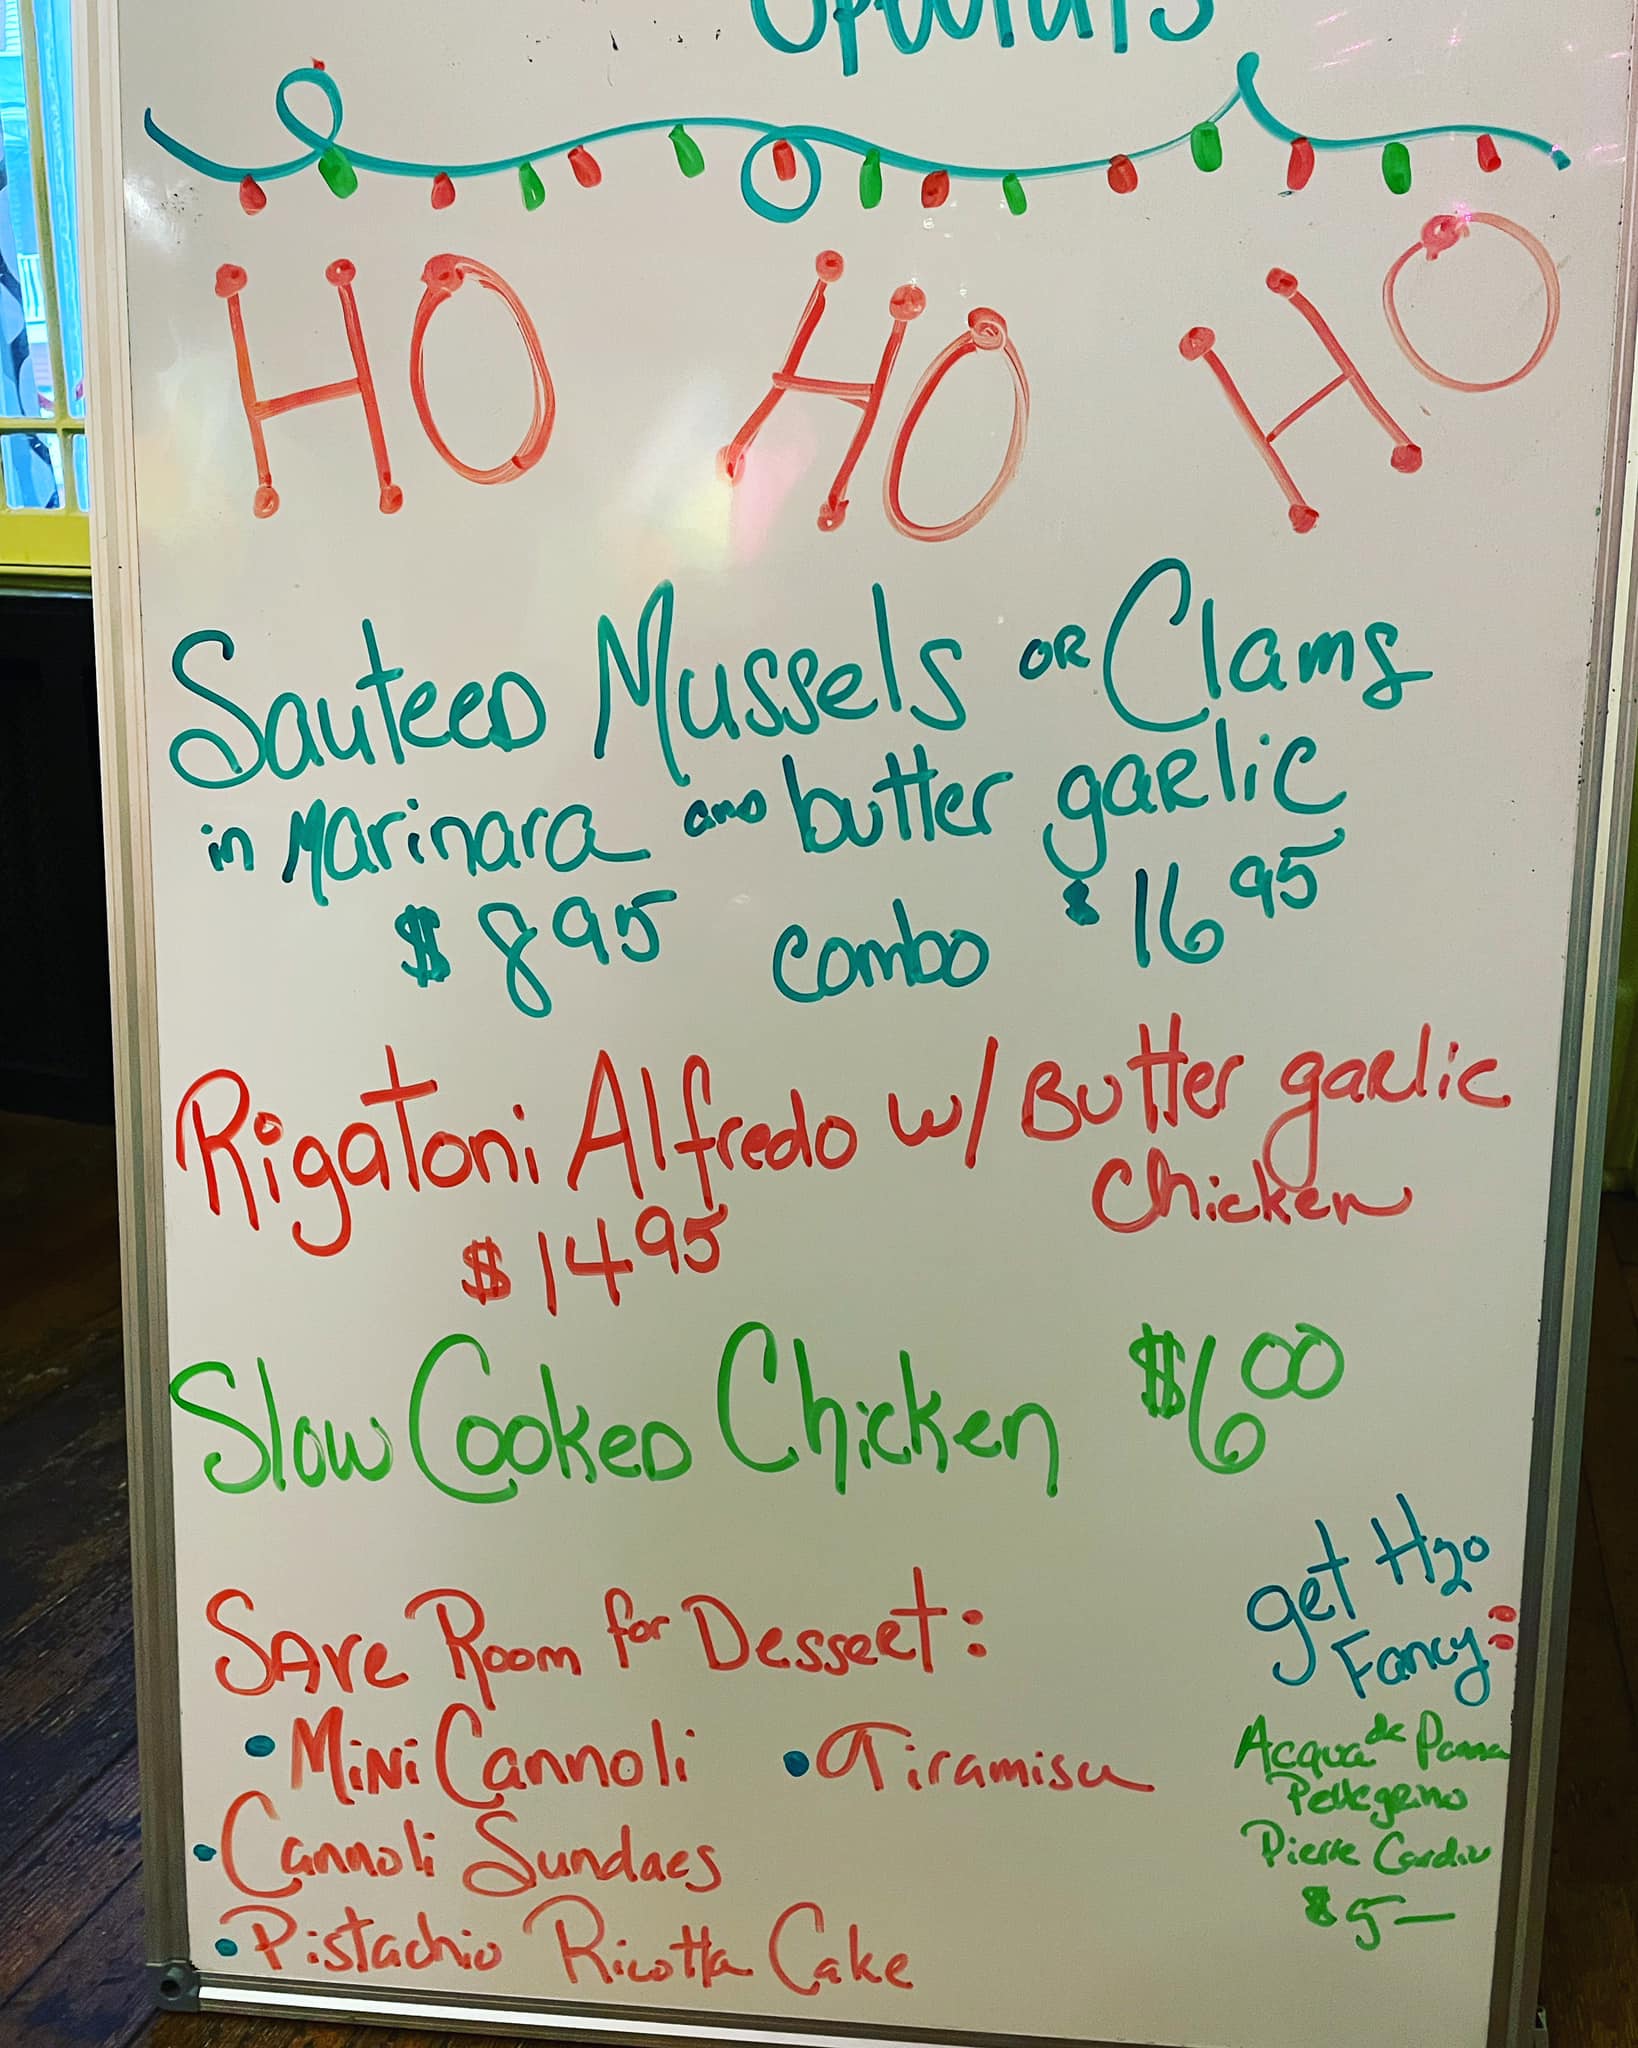 Specials
HO HO HO
Sauteed Mussels or Clams
in Marinara and butter garlic
$8.95 combo $16.95
Rigatoni Alfredo w/ Butter garlic
Chicken
$14.95
Slow Cooked Chicken $6.00
Save Room for Dessert:
• Mini Cannoli • Tiramisu
• Cannoli Sundaes
• Pistachio Ricotta Cake
get H2O
Fancy:
Acqua de Panna
Pellegrino
Pierre Cardin
$5—